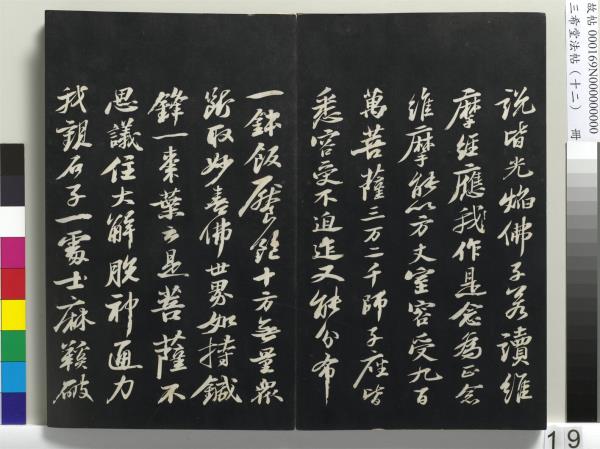 説皆光焰佛子若讀維
摩經應我作是念為正念
維摩能以方丈室容受九百
萬菩薩三万二千師子座皆
悉容受不迫迮又能分布
一鉢飯饜飽十方無量衆
斷取妙喜佛世界如持鍼
鋒一棗葉云是菩薩不
思議住大解脱神通力
我觀石子一處士麻鞋破
故帖 000169N000000000
三希堂法帖(十二) 冊
19